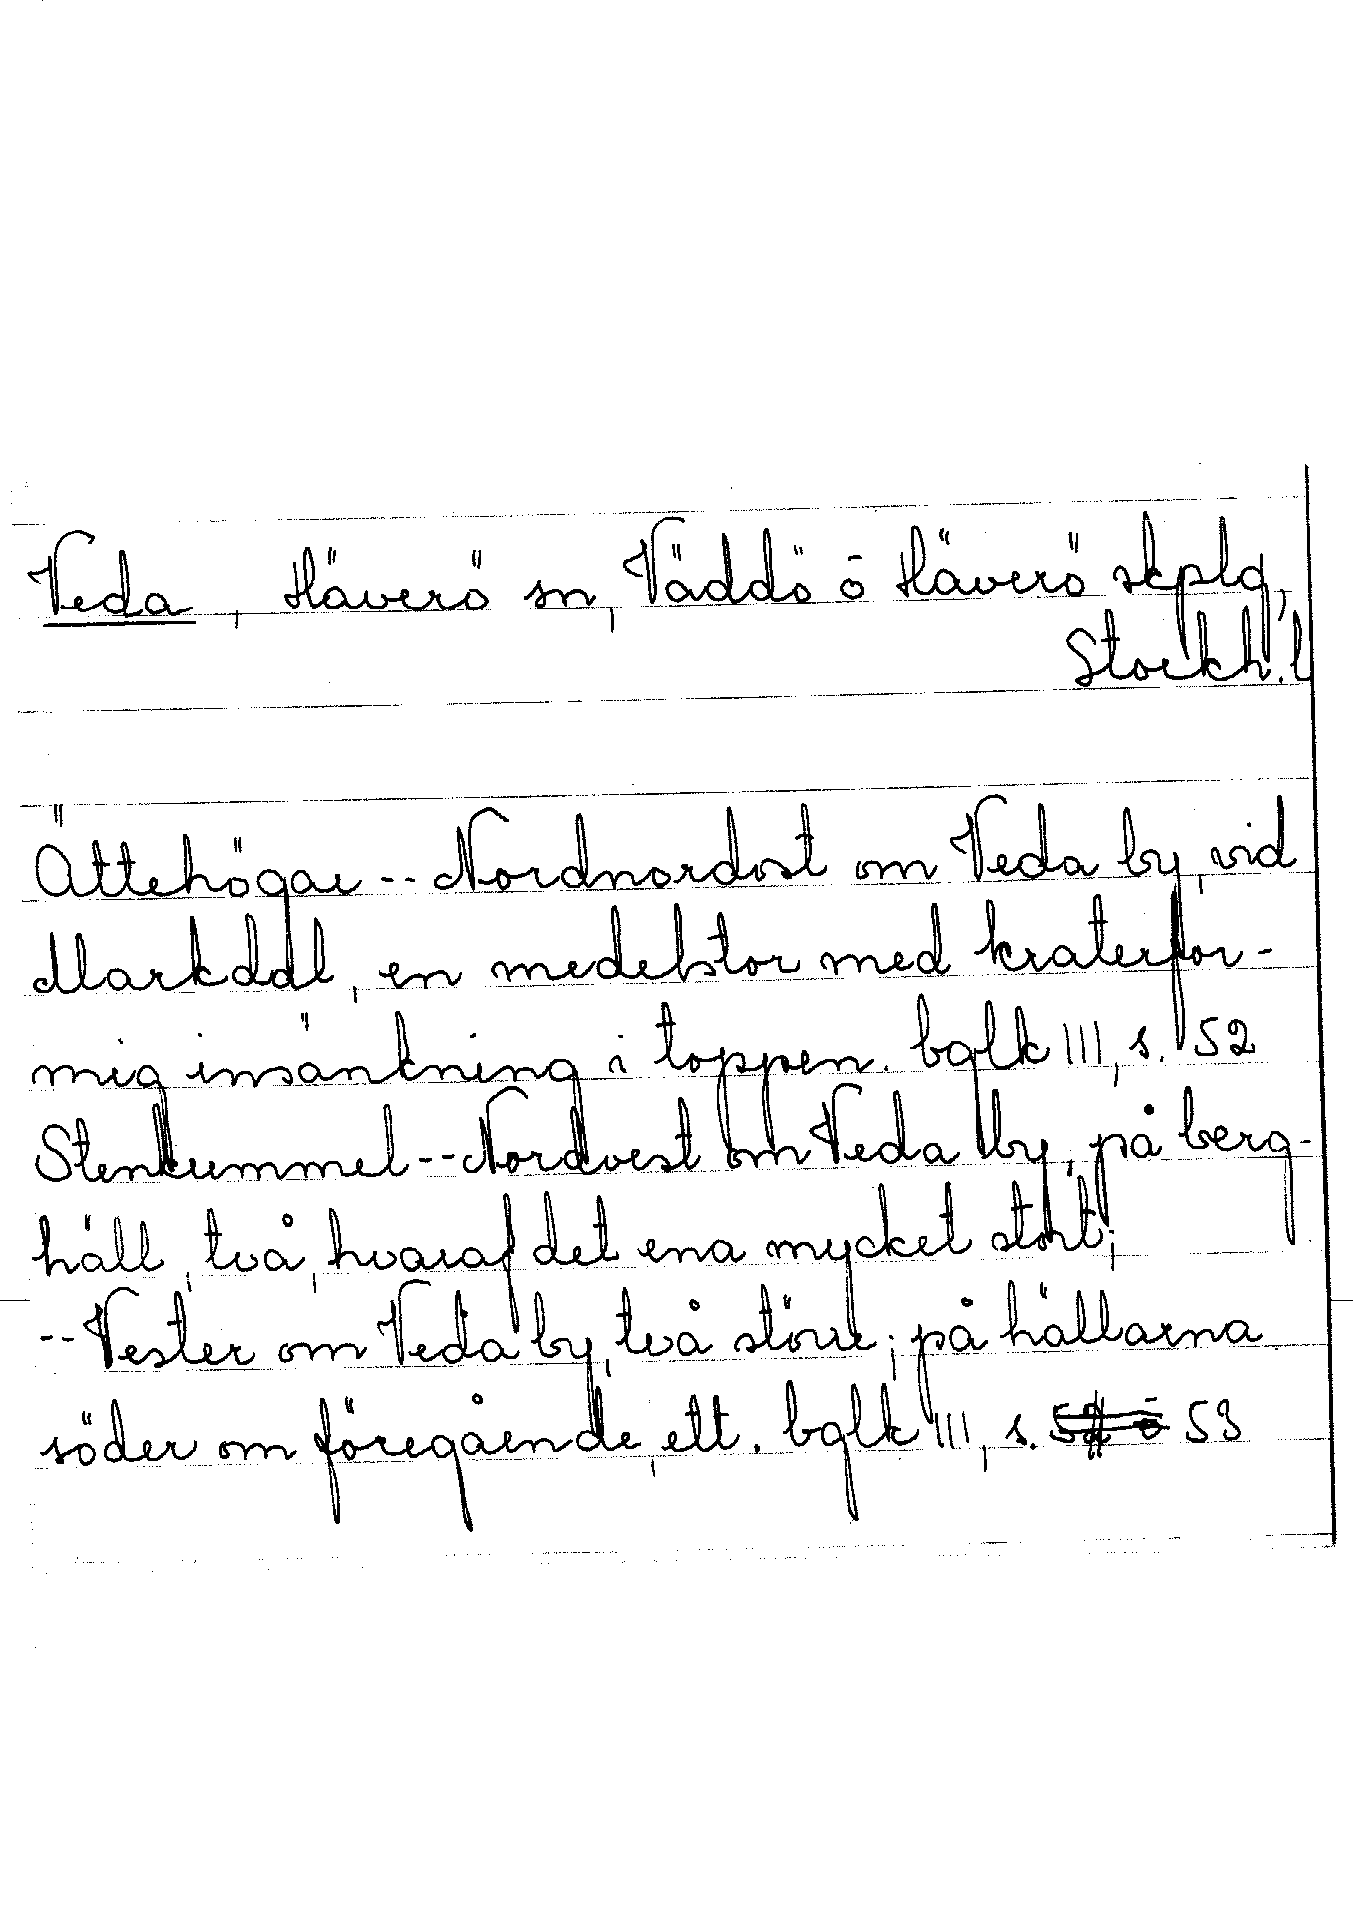 Veda, Häverö sn, Väddö ō Häverö skplg,
Stockh. l
Ättehögar -- Nordnordost om Veda by, vid
Markdal, en medelstor med kraterfor-
mig insänkning i toppen. bglk III, s. 52
Stenkummel -- Nordvest om Veda by, på berg-
häll, två, hvaraf det ena mycket stort;
-- Vester om Veda by, två större; på hällarna
söder om föregående, ett. bglk III, s. 53